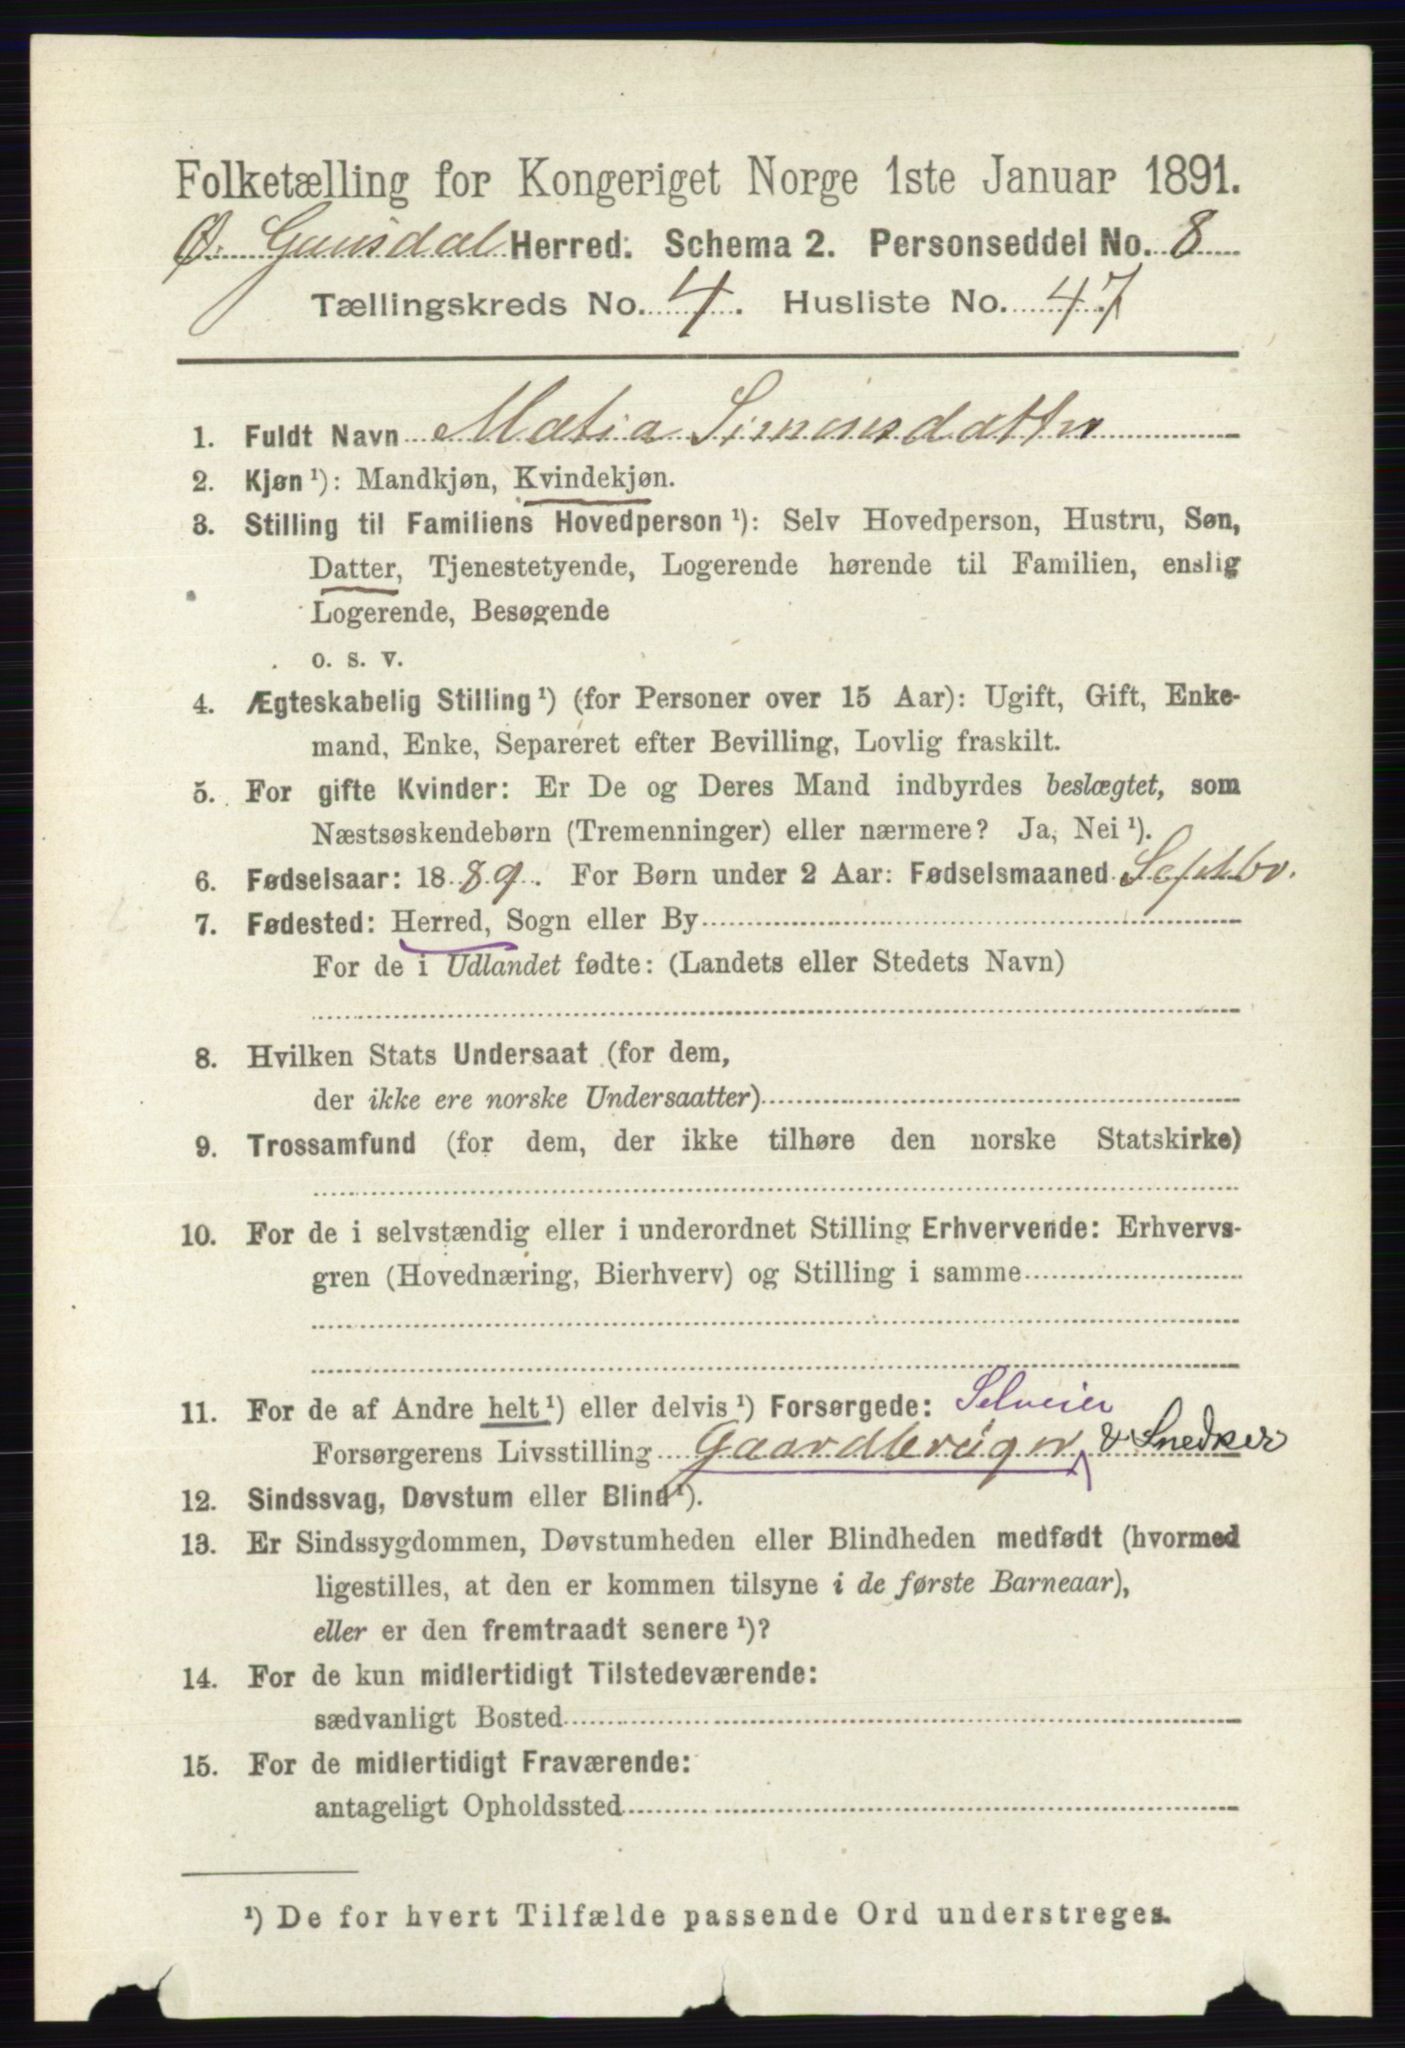 Folketælling for Kongeriget Norge 1ste Januar 1891.
Ø. Gausdal Herred. Schema 2. Personseddel No. 8
Tællingskreds No. 4. Husliste No. 47
1. Fuldt Navn Matia Simensdatter
2. Kjøn ¹): Mandkjøn, Kvindekjøn.
3. Stilling til Familiens Hovedperson ¹): Selv Hovedperson, Hustru, Søn,
Datter, Tjenestetyende, Logerende hørende til Familien, enslig
Logerende, Besøgende
o. s. v.
4. Ægteskabelig Stilling ¹) (for Personer over 15 Aar): Ugift, Gift, Enke-
mand, Enke, Separeret efter Bevilling, Lovlig fraskilt.
5. For gifte Kvinder: Er De og Deres Mand indbyrdes beslægtet, som
Næstsøskendebørn (Tremenninger) eller nærmere? Ja, Nei ¹).
6. Fødselsaar: 1889. For Børn under 2 Aar: Fødselsmaaned Septbr.
7. Fødested: Herred, Sogn eller By
For de i Udlandet fødte: (Landets eller Stedets Navn)
8. Hvilken Stats Undersaat (for dem,
der ikke ere norske Undersaatter)
9. Trossamfund (for dem, der ikke tilhøre den norske Statskirke)
10. For de i selvstændig eller i underordnet Stilling Erhvervende: Erhvervs-
gren (Hovednæring, Bierhverv) og Stilling i samme
11. For de af Andre helt ¹) eller delvis ¹) Forsørgede: Selveier
Forsørgerens Livsstilling Gaardbruger & Snedker
12. Sindssvag, Døvstum eller Blind ¹).
13. Er Sindssygdommen, Døvstumheden eller Blindheden medfødt (hvormed
ligestilles, at den er kommen tilsyne i de første Barneaar),
eller er den fremtraadt senere ¹)?
14. For de kun midlertidigt Tilstedeværende:
sædvanligt Bosted
15. For de midlertidigt Fraværende:
antageligt Opholdssted
¹) De for hvert Tilfælde passende Ord understreges.